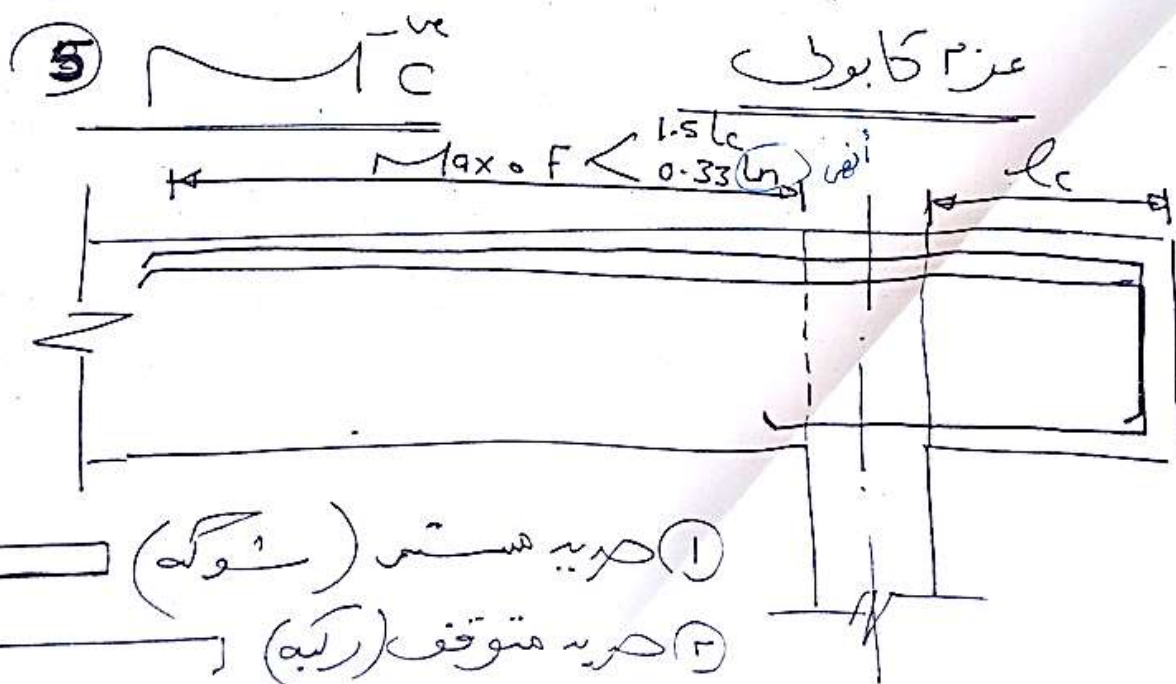 5
M -ve C
عزم كابولى
Max of 1.5 Lc
0.33 Ln
lc
① حديد مستمر (شوكه)
② حديد متوقف (ركبه)